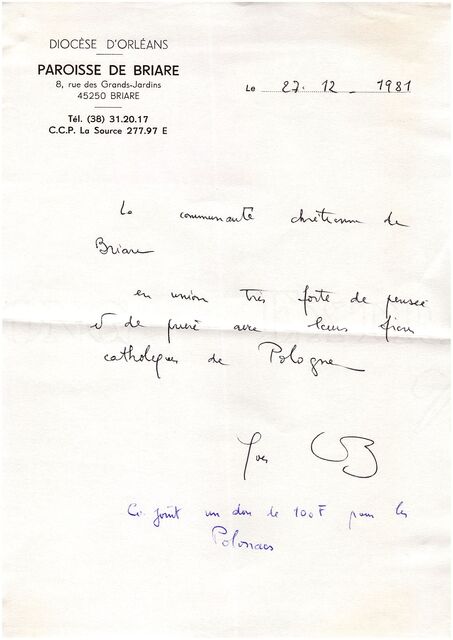 DIOCÈSE D'ORLÉANS
PAROISSE DE BRIARE
8, rue des Grands-Jardins
45250 BRIARE
Tél. (38) 31.20.17
C.C.P. La Source 277.97 E
Le 27. 12 _ 1981
La communauté chrétienne de
Briare
en union très forte de pensée
et de prière avec leurs frères
catholiques de Pologne
Yves
Ci joint un don de 100F pour les
Polonais